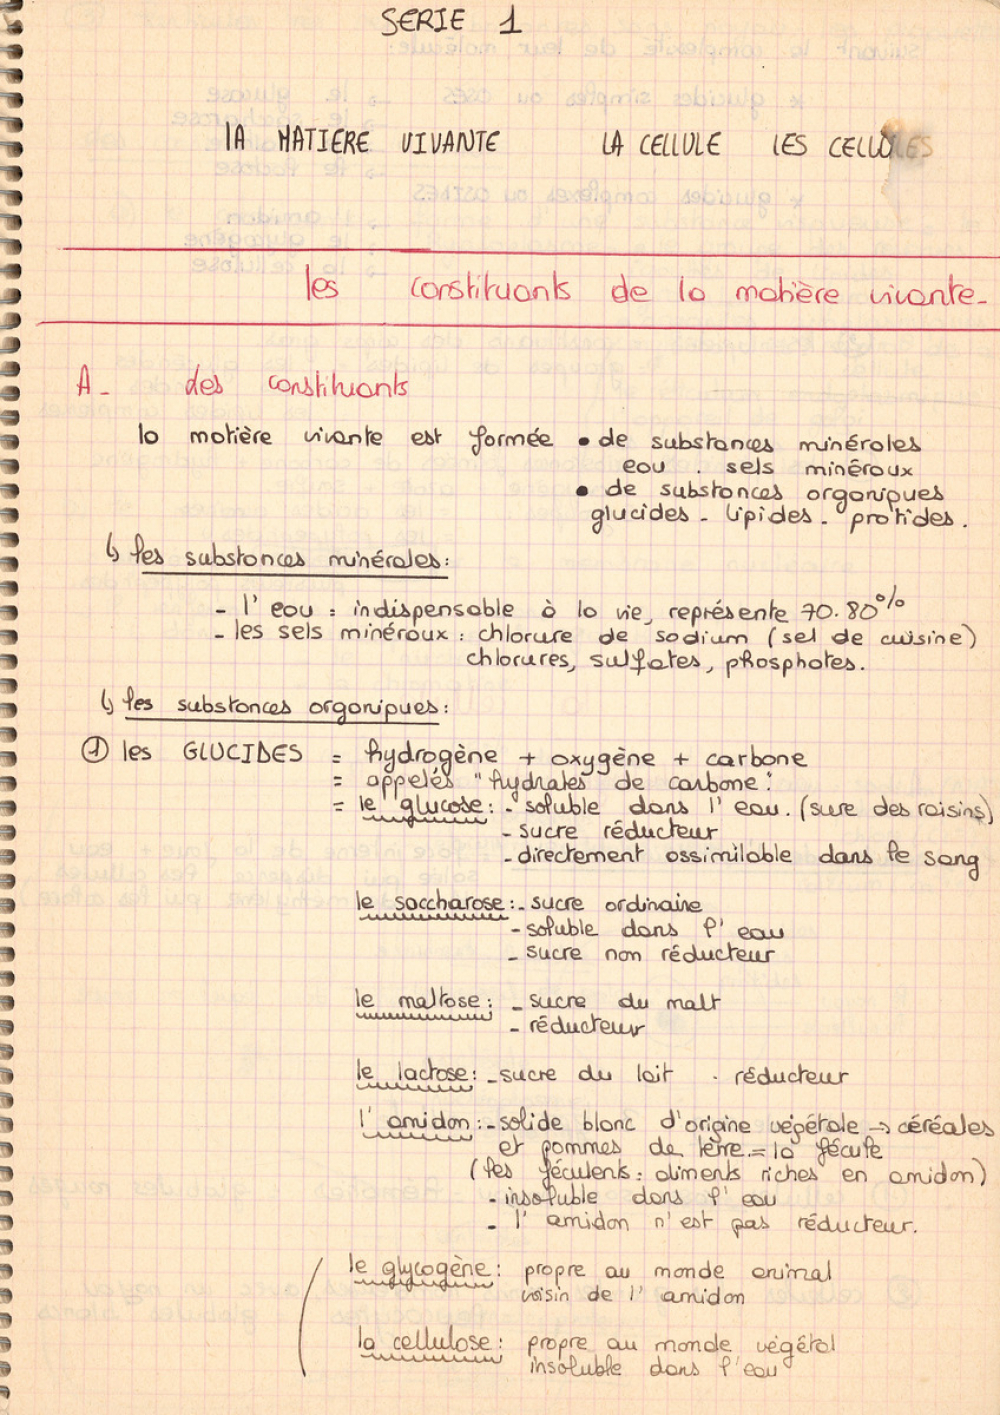 SERIE 1
LA MATIERE VIVANTE LA CELLULE LES CELLULES
les constituants de la matière vivante-
A- des constituants
la matière vivante est formée • de substances minérales
eau . sels minéraux
• de substances organiques
glucides - lipides - protides.
↳ les substances minérales:
- l'eau : indispensable à la vie, représente 70.80%
- les sels minéraux : chlorure de sodium (sel de cuisine)
chlorures, sulfates, phosphates.
↳ les substances organiques:
① les GLUCIDES = hydrogène + oxygène + carbone
= appelés "hydrates de carbone"
= le glucose: - soluble dans l'eau. (sure des raisins)
- sucre réducteur
- directement assimilable dans le sang
le saccharose: - sucre ordinaire
- soluble dans l'eau
- sucre non réducteur
le maltose: - sucre du malt
- réducteur
le lactose: - sucre du lait . réducteur
l'amidon: - solide blanc d'origine végétale → céréales
et pommes de terre = la fécule
(les féculents: aliments riches en amidon)
- insoluble dans l'eau
- l'amidon n'est pas réducteur.
le glycogène: propre au monde animal
voisin de l'amidon
la cellulose: propre au monde végétal
insoluble dans l'eau